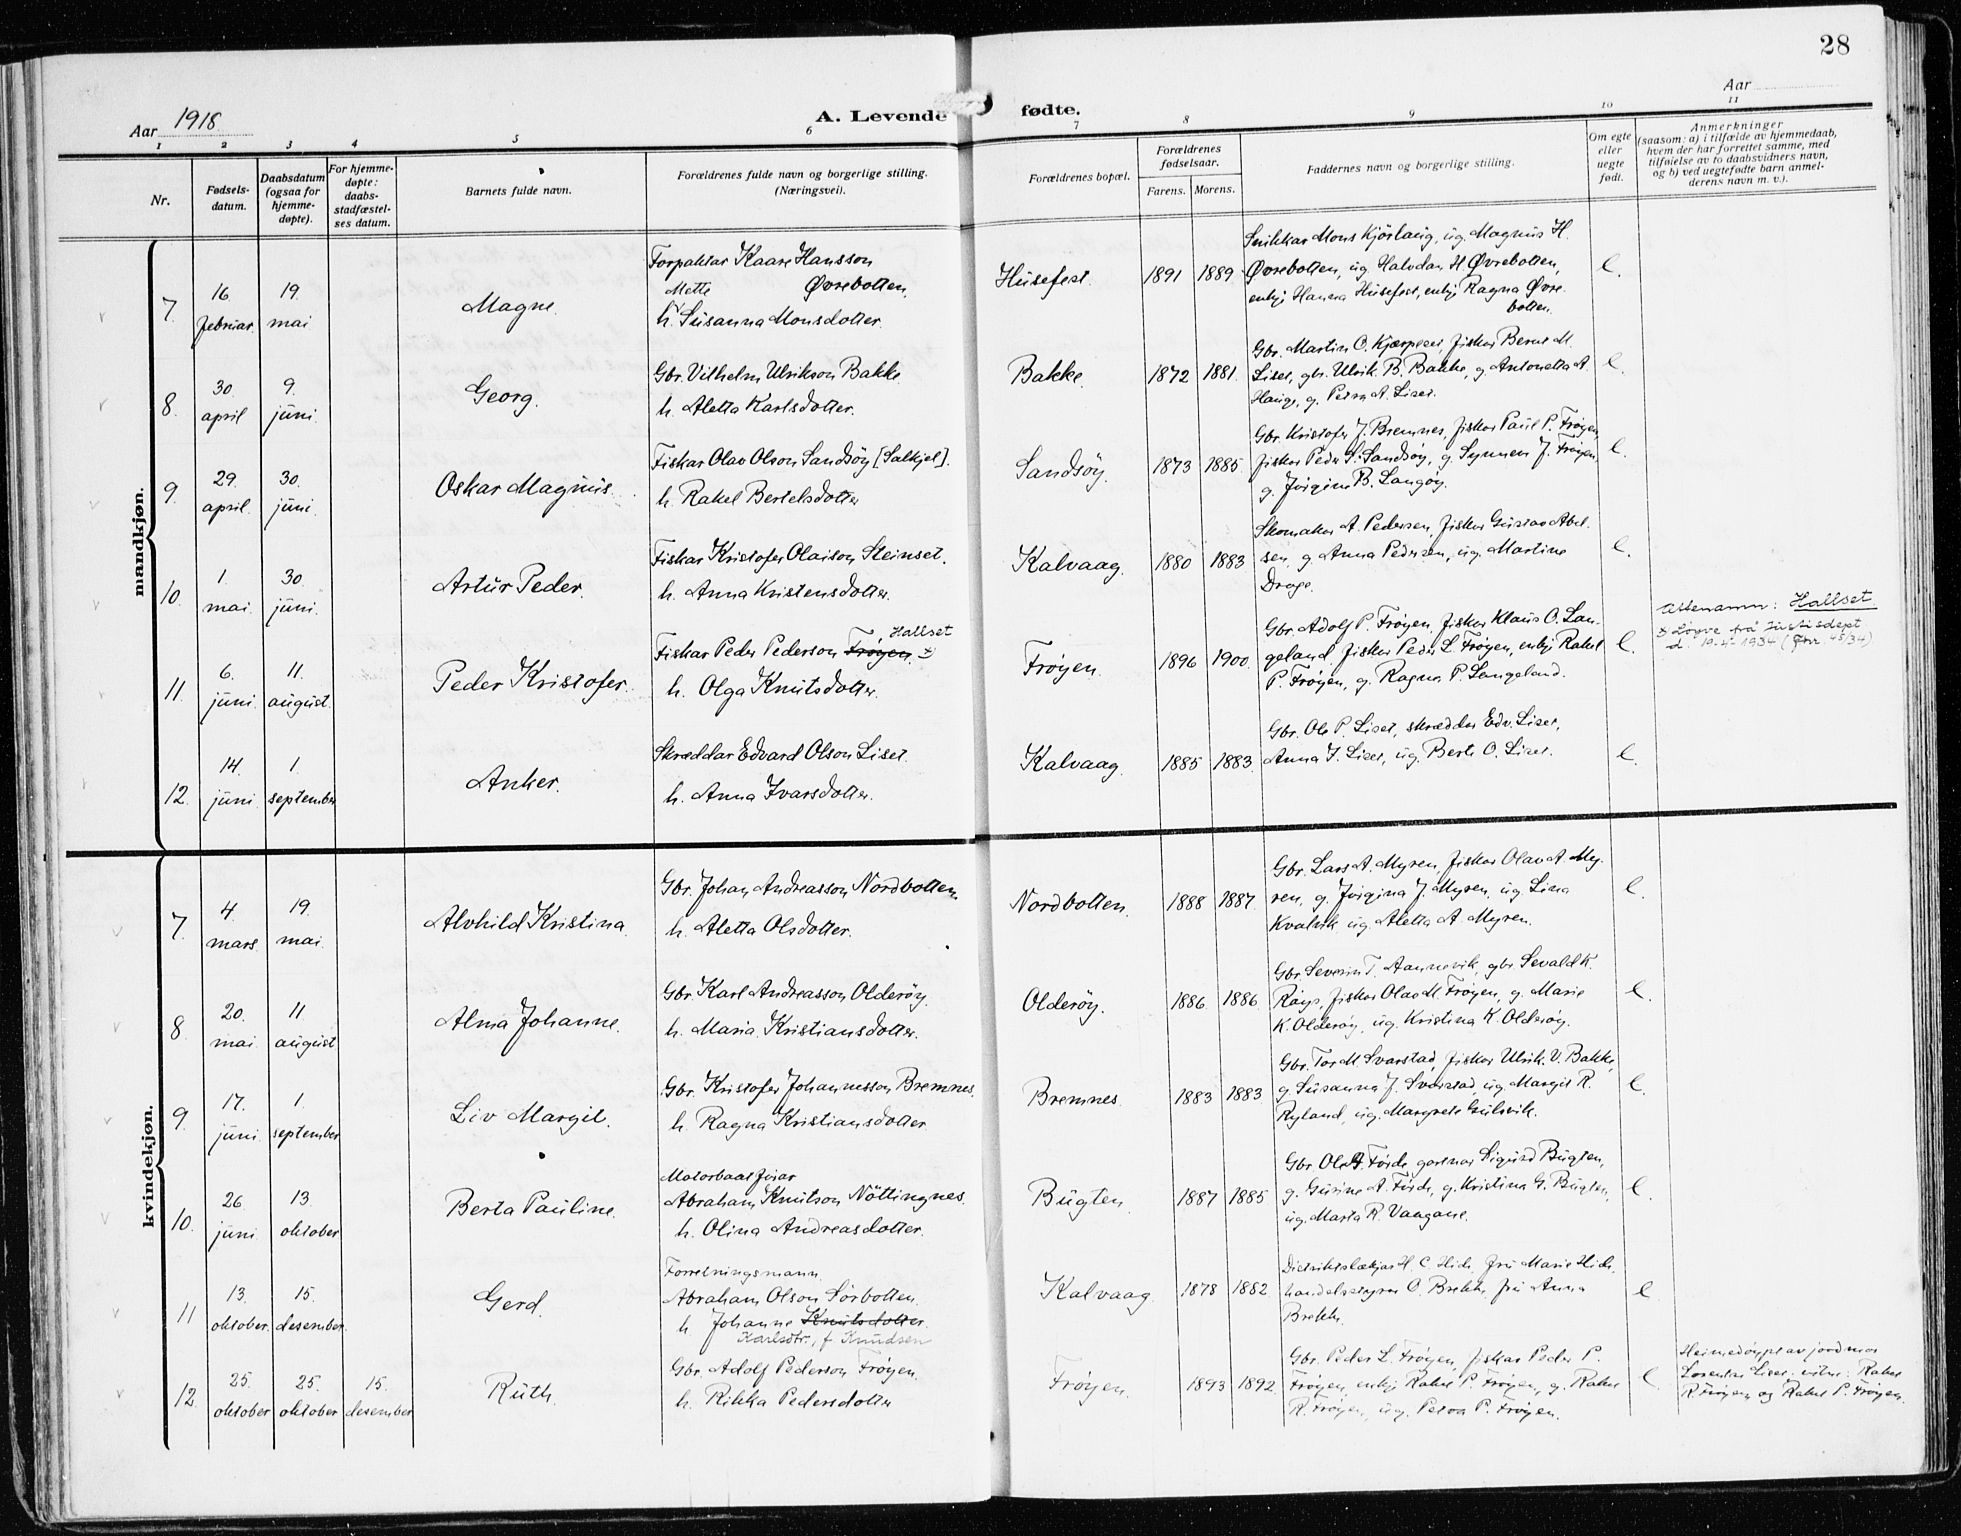 28
Aar 1918
A. Levende fødte.
Aar
1 2 3 4 5 6 7 8 9 10 11
Nr.
Fødsels-
datum.
Daabsdatum
(ogsaa for
hjemme-
døpte).
For hjemme-
døpte:
daabs-
stadfæstel-
ses datum.
Barnets fulde navn.
Forældrenes fulde navn og borgerlige stilling.
(Næringsvei).
Forældrenes bopæl.
Forældrenes
fødselsaar.
Farens. Morens.
Faddernes navn og borgerlige stilling.
Om egte
eller
uegte
født.
Anmerkninger
(saasom: a) i tilfælde av hjemmedaab,
hvem der har forrettet samme, med
tilføielse av to daabsvidners navn,
og b) ved uegtefødte barn anmel-
derens navn m. v.).
mandkjøn.
7. 16 februar. 19. mai. Magne.
Forpaktar Kaare Hansson
Mette Øvrebotten,
h. Susanna Monsdotter.
Husefest. 1891 1889.
Snikkar Mons Kjørlaug, ug. Magnus H.
Øvrebotten, ug. Halvdan H. Øvrebotten,
enkj. Hanna Husefest, enkj. Ragna Øvre-
botten.
e.
8. 30. april 9. juni. Georg.
Gbr. Vilhelm Ulrikson Bakke.
h. Aletta Karlsdotter.
Bakke. 1872 1881.
Gbr. Martin O. Kjærpeset, fiskar Bernt M.
Liset, gbr. Ulrik B. Bakke, g. Antonetta A.
Hauge, g. Petra A. Liset.
e.
9. 29. april. 30. juni. Oskar Magnus.
Fiskar Olav Olson Sandsøy [Salkjel].
h. Rakel Bertelsdotter
Sandsøy. 1873 1885.
Gbr. Kristofer J. Bremnes, fiskar Paul P. Frøyen,
fiskar Peder S. Sandsøy, g. Synneva J. Frøyen,
g. Jørgine B. Langøy.
e.
10. 1. mai. 30. juni. Artur Peder.
Fiskar Kristofer Olaison Steinset.
h. Anna Kristensdotter.
Kalvaag. 1880 1883
Skomakar A. Pedersen, fiskar Gustav Abel-
sen, g. Anna Pedersen, ug. Martine
Drage.
e.
11. 6. juni. 11. august. Peder Kristofer.
Hallset
Fiskar Peder Pederson Frøyen. x)
h. Olga Knutsdotter.
Frøyen. 1896 1900.
Gbr. Adolf P. Frøyen, fiskar Klaus O. Lan-
geland, fiskar Peder L. Frøyen, enkj. Rakel
P. Frøyen, g. Ragna P. Langeland.
e.
Ættenamn: Hallset
x) Løyve frå Justisdept
d. 19.4.1934 (Jnr 45/34)
12. 14. juni. 1. september. Anker.
Skræddar Edvard Olson Liset.
h. Anna Ivarsdotter.
Kalvaag. 1885 1883.
Gbr. Ole P. Liset, skræddar Edv. Liset,
Anna I. Liset, ug. Berte O. Liset.
e.
kvindekjøn.
7. 4 mars. 19. mai. Alvhild Kristina.
Gbr. Johan Andreasson Nordbotten
h. Aletta Olsdotter.
Nordbotten. 1888 1887.
Gbr. Lars A. Myren, fiskar Olav A. My-
ren, g. Jørgina J. Myren, ug. Lina
Kvalvik, ug. Aletta A. Myren.
e.
8. 20. mai. 11 august Alma Johanne.
Gbr. Karl Andreasson Olderøy.
h. Maria Kristiansdotter.
Olderøy. 1886 1886.
Gbr. Severin T. Aannevik, gbr. Sevald K.
fiskar Olav M. Frøyen, g. Marie
K. Olderøy, ug. Kristina K. Olderøy.
e.
9. 17. juni. 1. september Liv Margit.
Gbr. Kristofer Johannesson Bremnes.
h. Ragna Kristiansdotter.
Bremnes. 1883 1883
Gbr. Tor M. Svarstad, fiskar Ulrik V. Bakke,
g. Susanna J. Svarstad, ug. Margit R.
Ryland, ug. Margrete Gulsvik.
e.
10. 26. juni. 13. oktober Berta Pauline.
Motorbaatførar
Abraham Knutson Nøttingnes.
h. Olina Andreasdotter.
Bugten. 1887 1885
Gbr. Ole A. Førde, gartnar Sigurd Bugten,
g. Gurine A. Førde, g. Kristina G. Bugten,
ug. Marta R. Vaagane.
e.
11 13. oktober. 15. desember. Gerd.
Forretningsmann.
Abraham Olson Sørbotten.
h. Johanne Knutsdotter.
Karlsdtr., f. Knudsen
Kalvaag. 1878 1882
Distriktslækjar H. C. Hide, fru Marie Hide,
handelsstyrer O. Brekke, fru Anna
Brekke.
e.
12. 25. oktober 25. oktober 15. desember Ruth.
Gbr. Adolf Pederson Frøyen.
h. Rikka Pedersdotter
Frøyen. 1893 1892.
Gbr. Peder L. Frøyen, fiskar Peder P.
Frøyen, enkj. Rakel P. Frøyen, g. Rakel
R. Frøyen, ug. Petra P. Frøyen.
e.
Heimedøypt av jordmor
Lorentse Liset, vitne: Rakel
R. Frøyen og Rakel P. Frøyen.